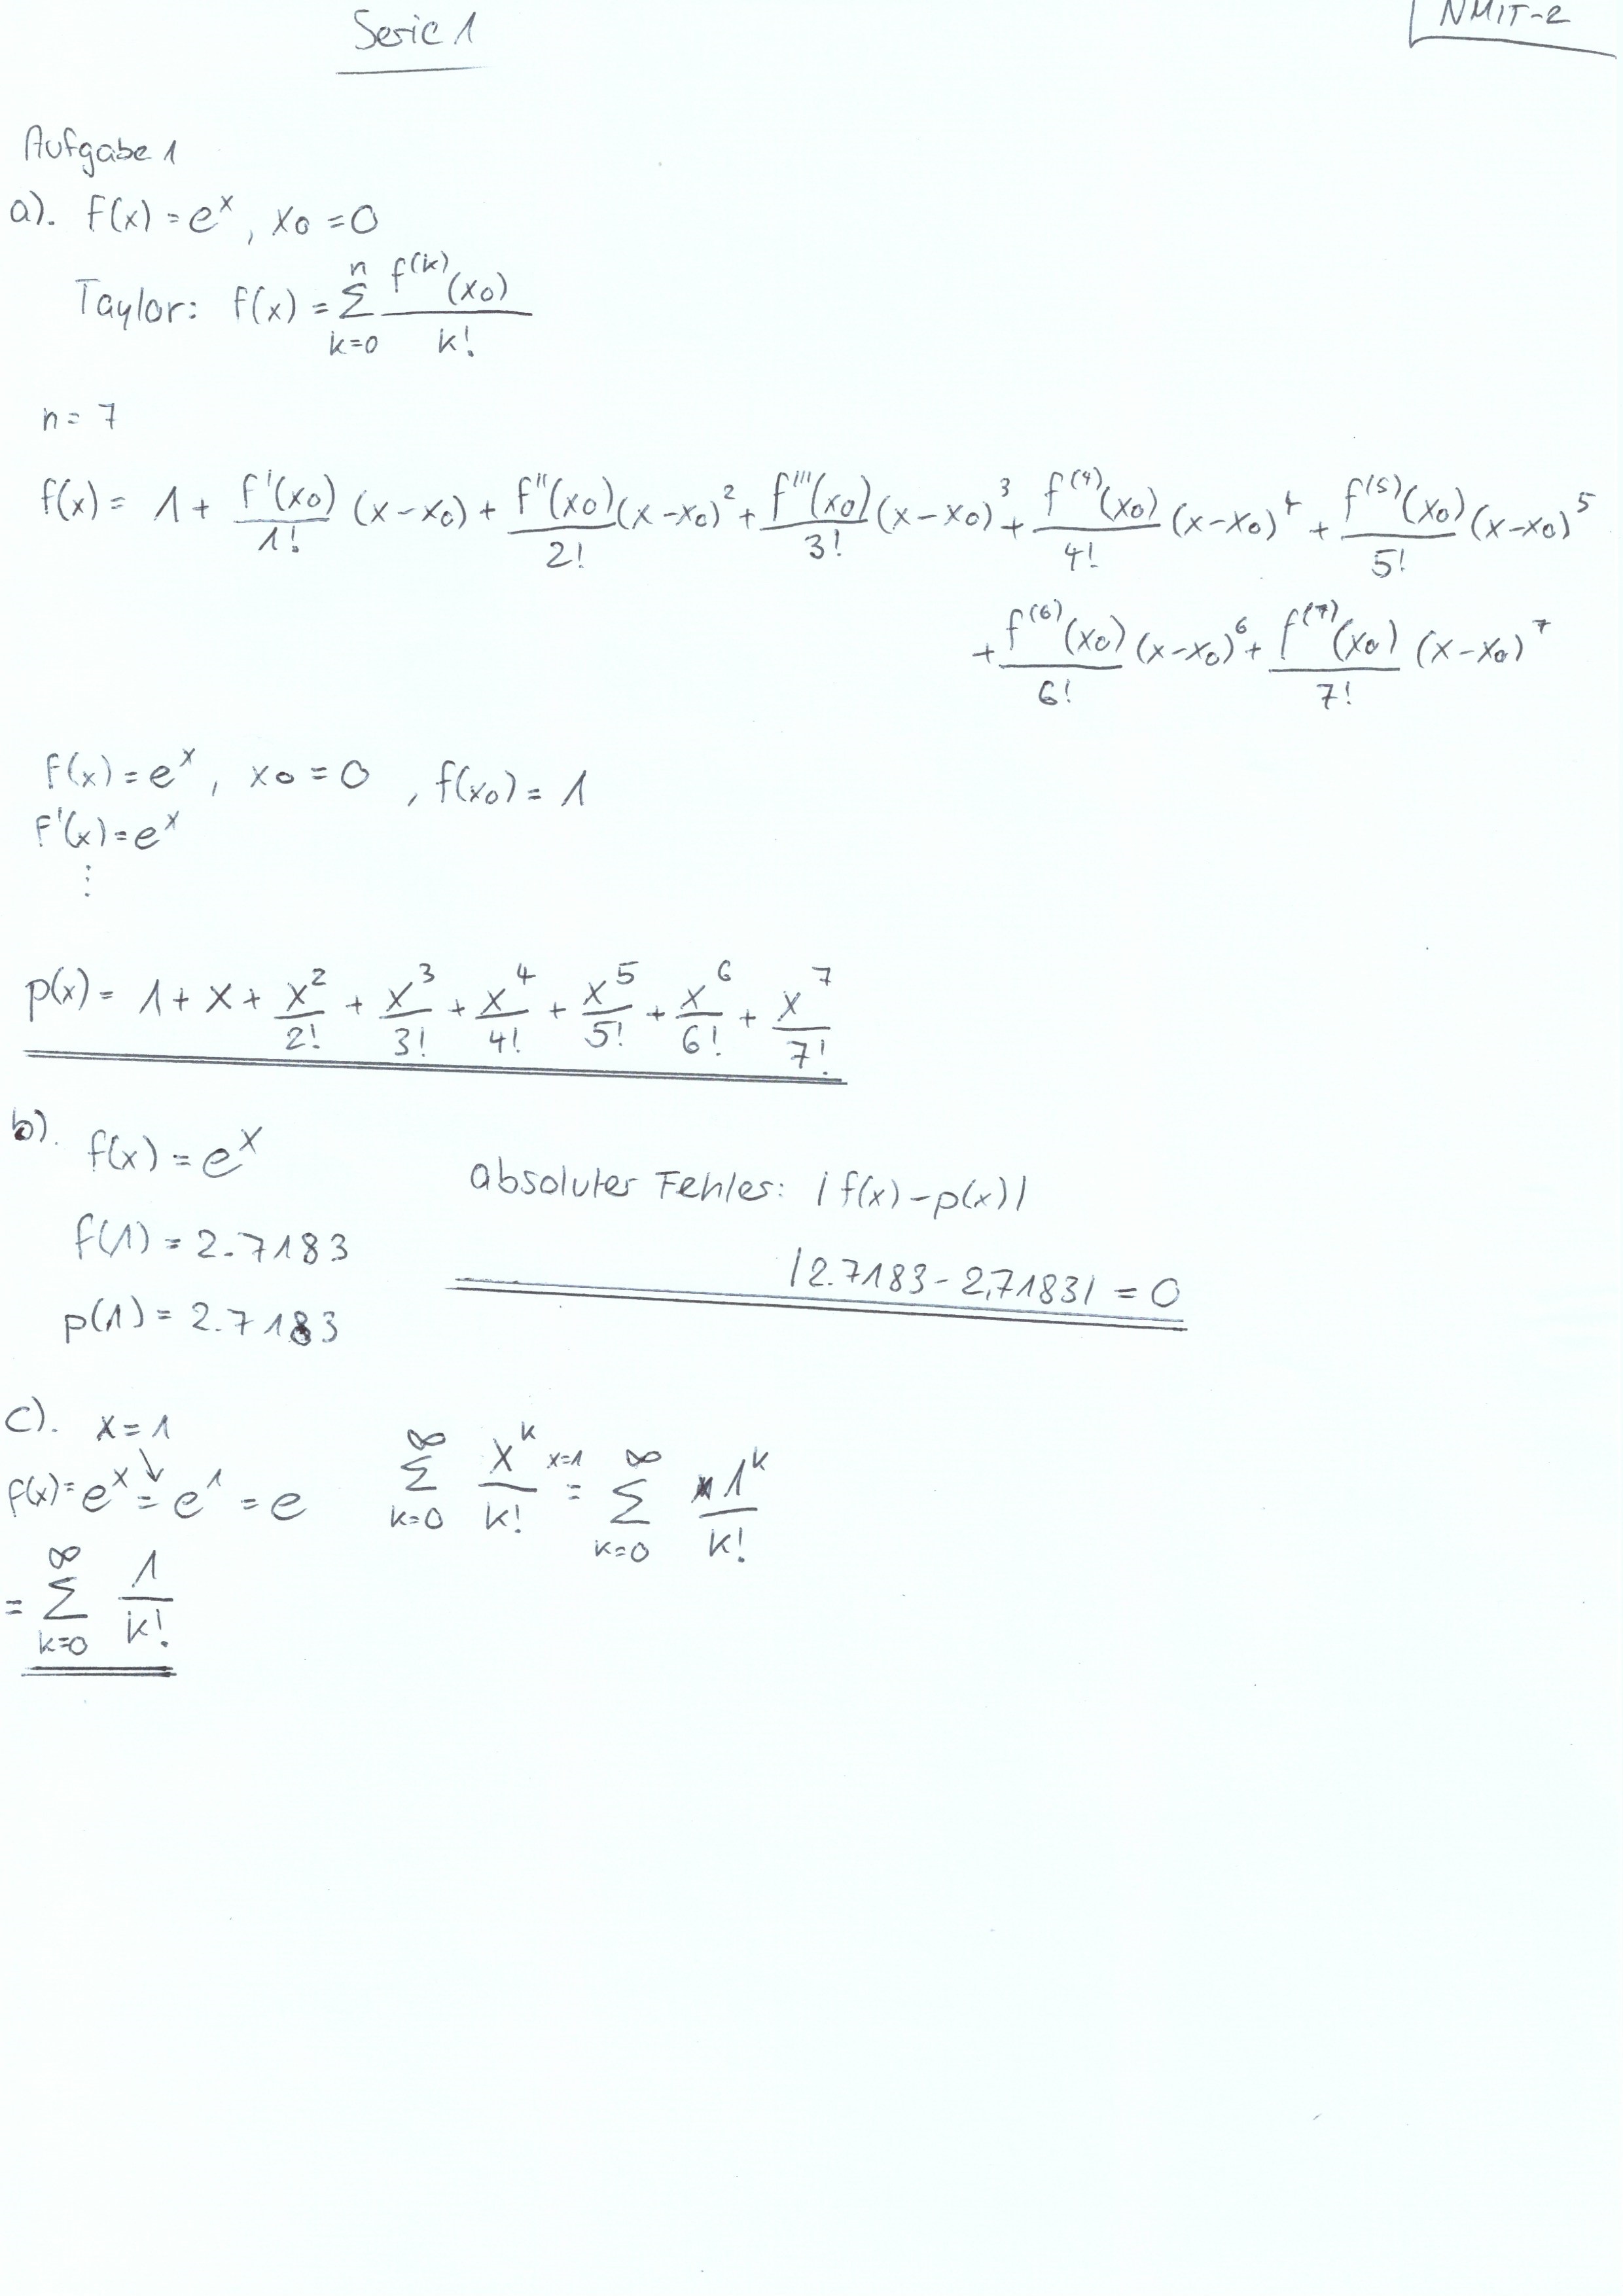 Serie 1
NMIT-2
Aufgabe 1
a). f(x) = e^x, x0 = 0
Taylor: f(x) = Σ_{k=0}^{n} f^(k)(x0) / k!
n = 7
f(x) = 1 + f'(x0)/1! (x-x0) + f''(x0)/2! (x-x0)^2 + f'''(x0)/3! (x-x0)^3 + f^(4)(x0)/4! (x-x0)^4 + f^(5)(x0)/5! (x-x0)^5
+ f^(6)(x0)/6! (x-x0)^6 + f^(7)(x0)/7! (x-x0)^7
f(x) = e^x, x0 = 0, f(x0) = 1
f'(x) = e^x
⋮
p(x) = 1 + x + x^2/2! + x^3/3! + x^4/4! + x^5/5! + x^6/6! + x^7/7!
b). f(x) = e^x
f(1) = 2.7183
p(1) = 2.7183
absoluter Fehler: |f(x) - p(x)|
|2.7183 - 2,7183| = 0
c). x = 1
f(x) = e^x = e^1 = e
Σ_{k=0}^{∞} x^k/k! x=1 = Σ_{k=0}^{∞} 1^k/k!
= Σ_{k=0}^{∞} 1/k!